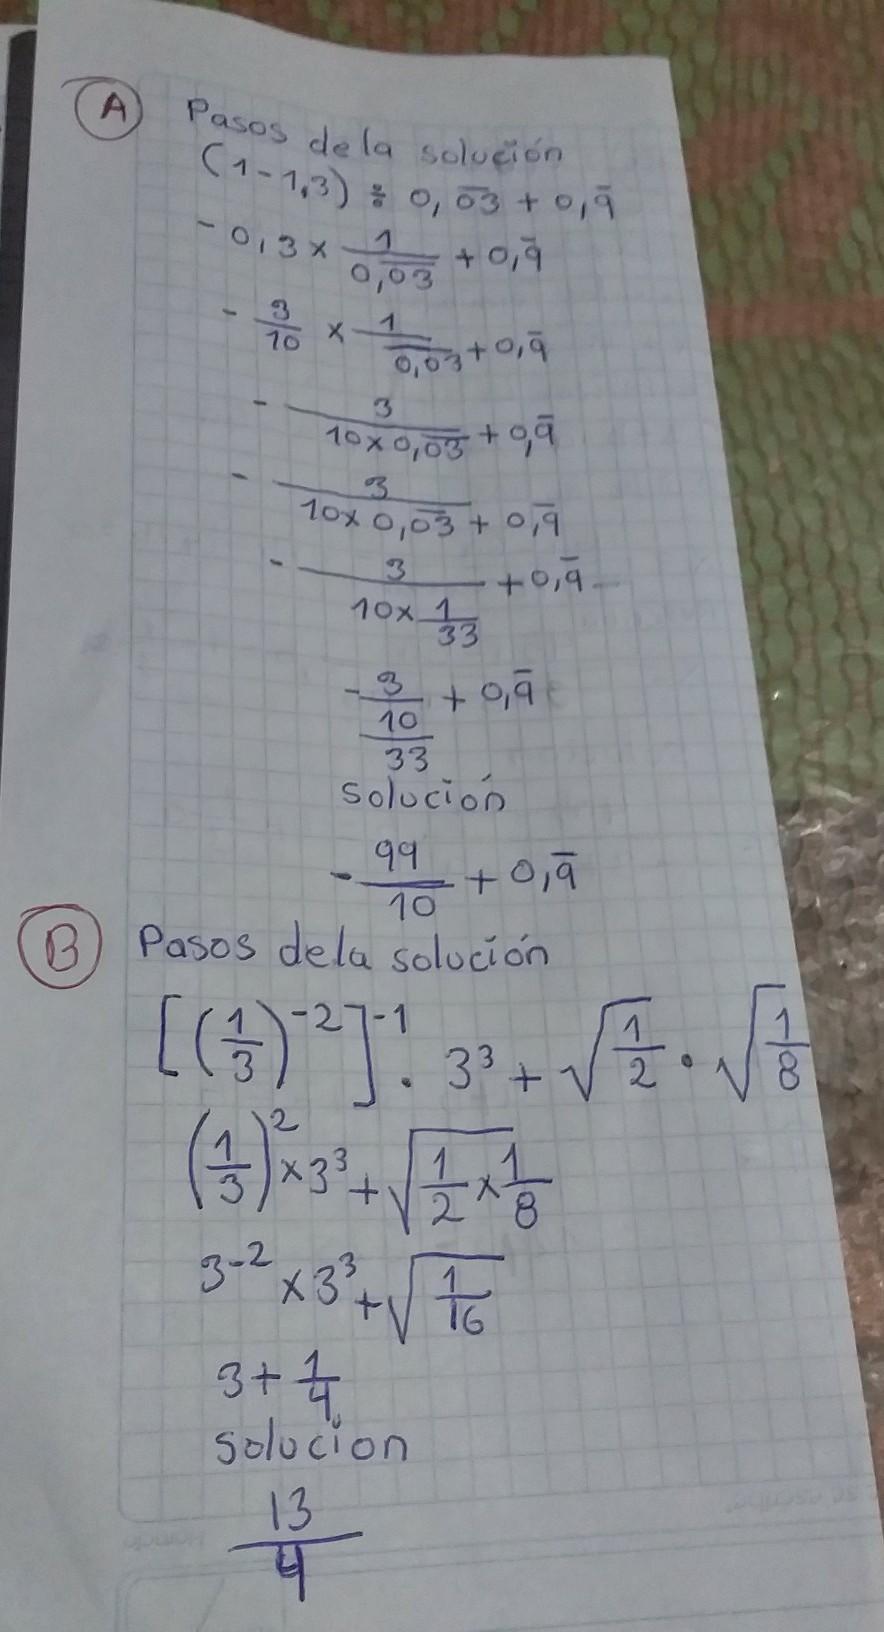 A Pasos de la solución
(1-1,3) ÷ 0,0̅3̅ + 0,9̅
- 0,3 × 1/0,0̅3̅ + 0,9̅
- 3/10 × 1/0,0̅3̅ + 0,9̅
- 3/(10×0,0̅3̅) + 0,9̅
- 3/(10×0,0̅3̅) + 0,9̅
- 3/(10×1/33) + 0,9̅
- 3/(10/33) + 0,9̅
solución
- 99/10 + 0,9̅
B Pasos de la solución
[(1/3)^-2]^-1 · 3^3 + √(1/2) · √(1/8)
(1/3)^2 × 3^3 + √(1/2 × 1/8)
3^-2 × 3^3 + √(1/16)
3 + 1/4
solucion
13/4